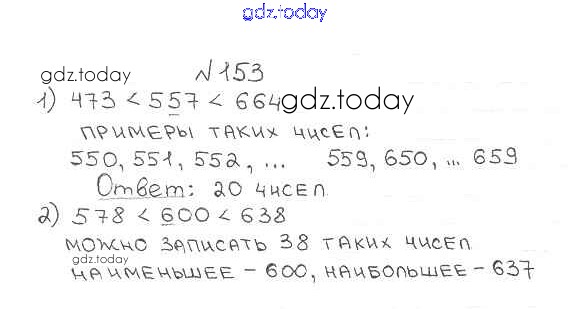 gdz.today
gdz.today №153
1) 473 < 557 < 664 gdz.today
ПРИМЕРЫ ТАКИХ ЧИСЕЛ:
550, 551, 552, ... 559, 650, ... 659
Ответ: 20 ЧИСЕЛ
2) 578 < 600 < 638
МОЖНО ЗАПИСАТЬ 38 ТАКИХ ЧИСЕЛ
gdz.today
НАИМЕНЬШЕЕ - 600, НАИБОЛЬШЕЕ - 637